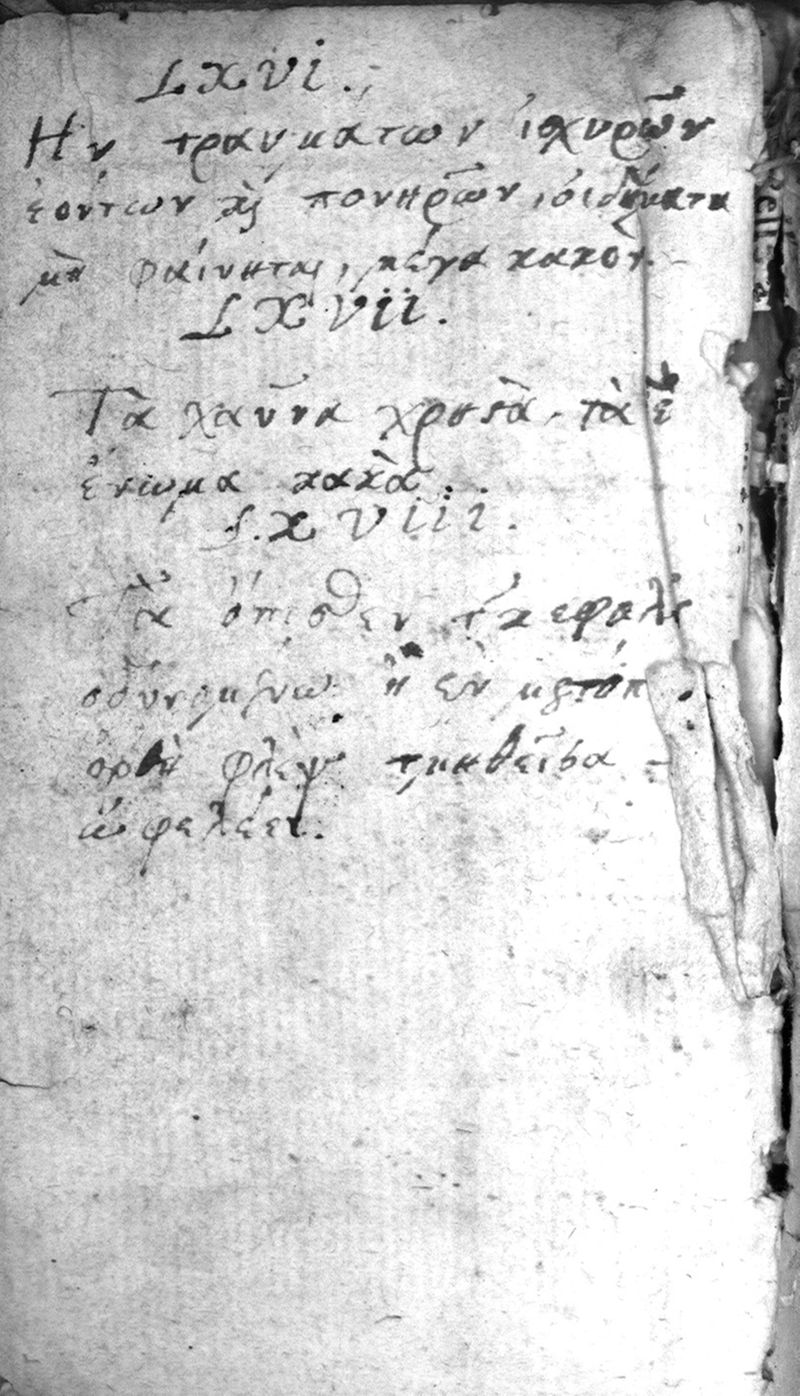 LXVi.
Ην τραυμάτων ἰσχυρῶν
ἐόντων καὶ πονηρῶν, οἰδήματα
μὴ φαίνηται, μέγα κακόν.
LXVii.
Τὰ χαῦνα χρηστὰ, τὰ
ἔνωμα κακὰ.
LXViii.
Τὰ ὄπισθεν τ κεφαλῆς
ὀδυνομένω ἡ ἐν μετώπ
ορθὴ φλὲψ τμηθεῖσα
ὠφελέει.